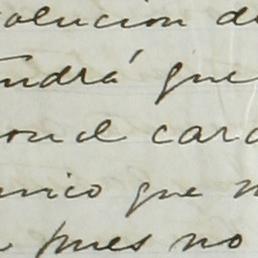 olucion de
endrá que
con el cará
unico que n
pues no